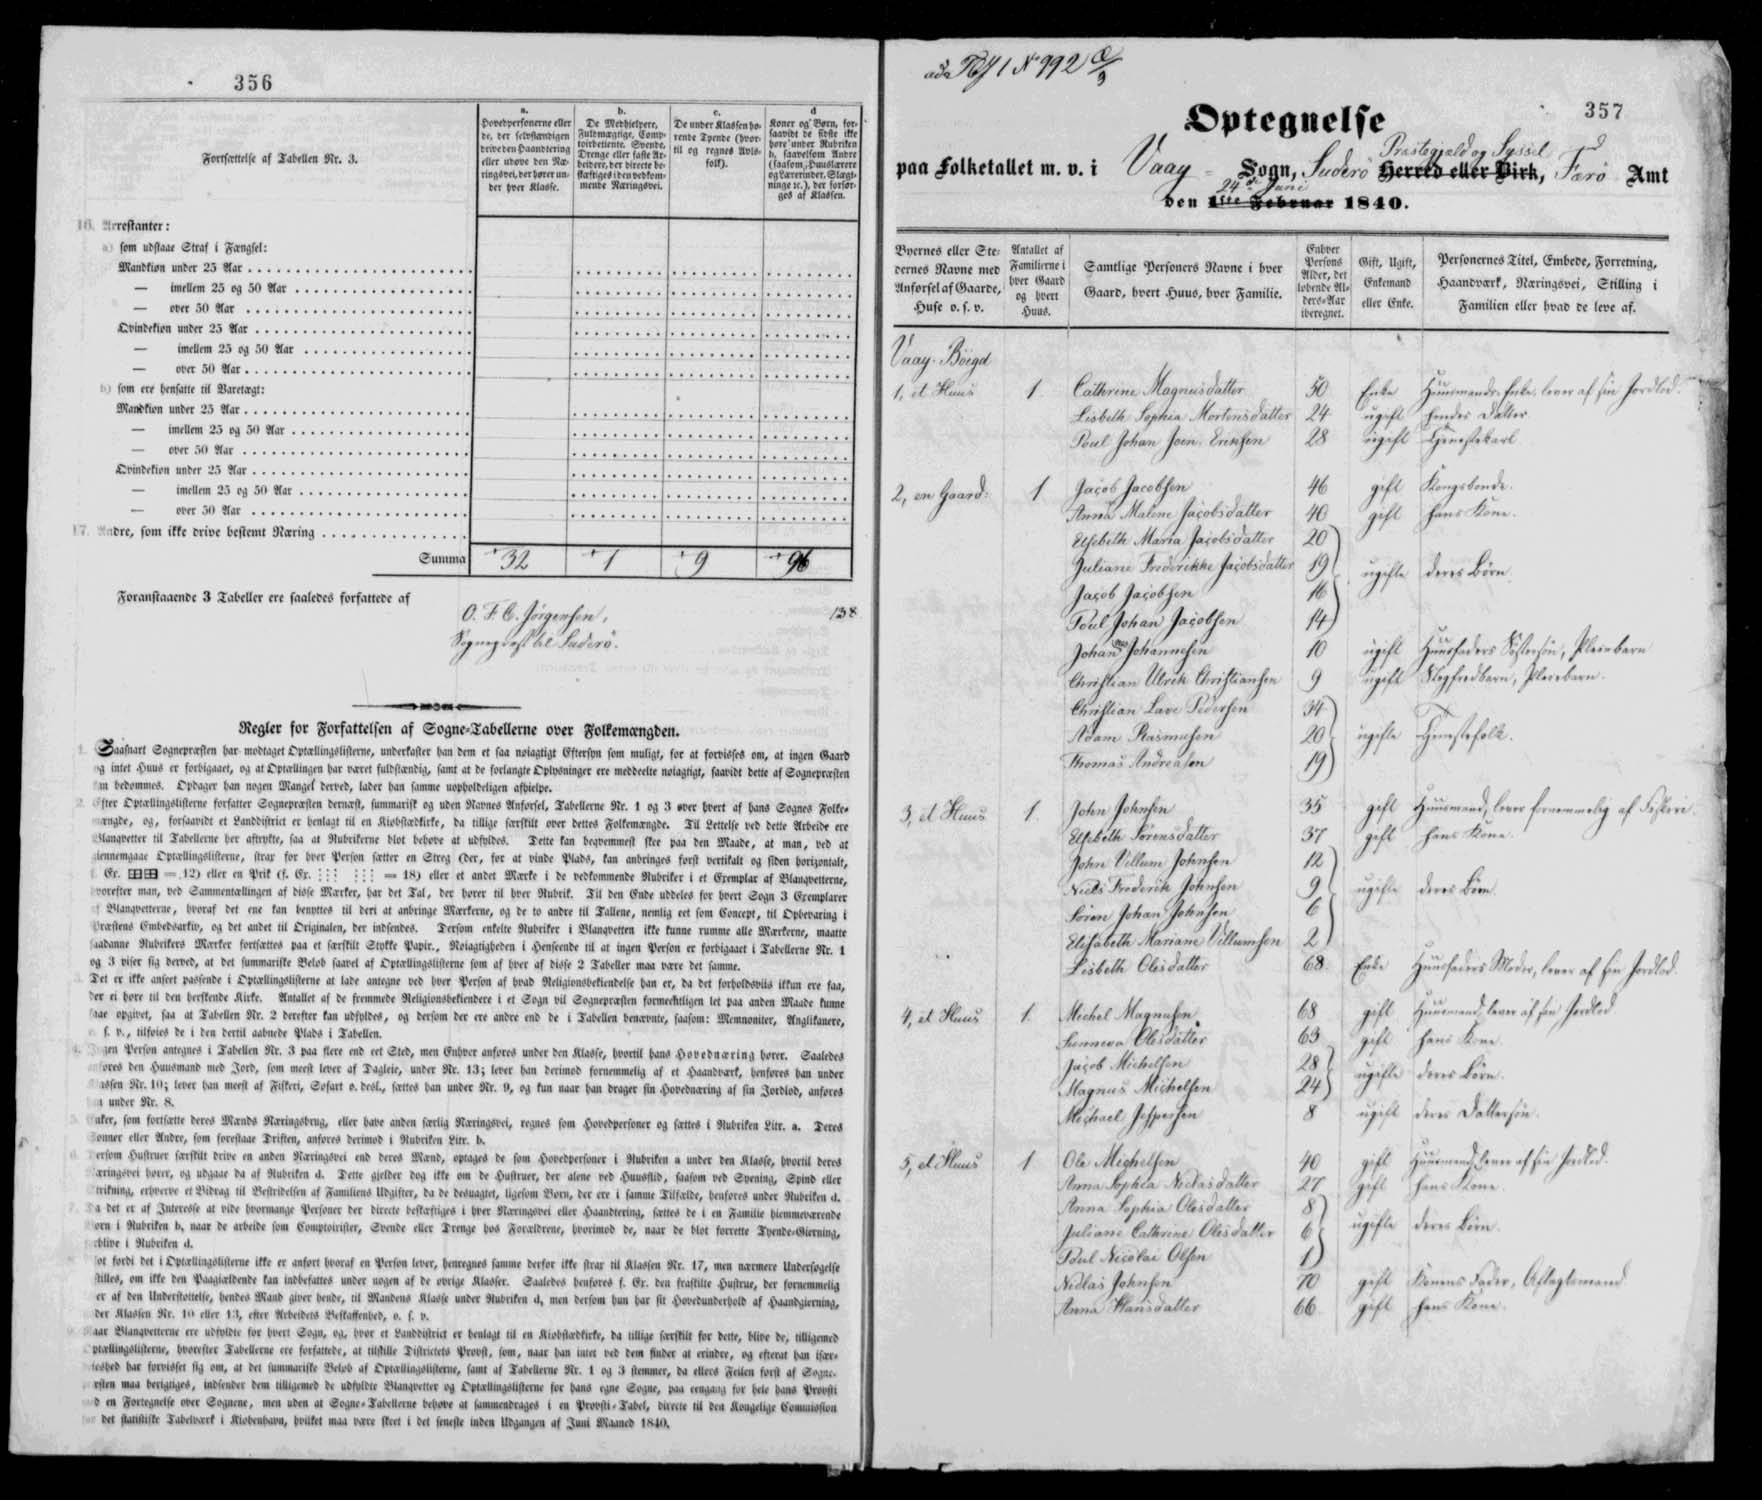 356
Fortsættelse af Tabellen Nr. 3.
a.
Hovedpersonerne eller
de, der selvstændigen
drive den Haandtering
eller udøve den Næ-
ringsvei, der hører un-
der hver Klasse.
b.
De Medhjelpere,
Fuldmægtige, Comp-
toirbetiente, Svende,
Drenge eller faste Ar-
beidere, der directe be-
skæftiges i den vedkom-
mende Næringsvei.
c.
De under Klassen hø-
rende Tyende (hvor-
til og regnes Avls-
folk).
d
Koner og Børn, for-
saavidt de sidste ikke
høre under Rubriken
b, saavelsom Andre
(saasom, Huuslærere
og Lærerinder, Slægt-
ninge ɾc.), der forsør-
ges af Klassen.
16. Arrestanter:
a) som udstaae Straf i Fængsel:
Mandkiøn under 25 Aar
— imellem 25 og 50 Aar
— over 50 Aar
Qvindekiøn under 25 Aar
— imellem 25 og 50 Aar
— over 50 Aar
b) som ere hensatte til Varetægt:
Mandkiøn under 25 Aar
— imellem 25 og 50 Aar
— over 50 Aar
Qvindekiøn under 25 Aar
— imellem 25 og 50 Aar
— over 50 Aar
17. Andre, som ikke drive bestemt Næring
Summa 32 1 9 96
138
Foranstaaende 3 Tabeller ere saaledes forfattede af
O. F. C. Jørgensen,
Sognepræst til Suderø.
Regler for Forfattelsen af Sogne-Tabellerne over Folkemængden.
1. Saasnart Sognepræsten har modtaget Optællingslisterne, underkaster han dem et saa nøiagtigt Eftersyn som muligt, for at forvisses om, at ingen Gaard
og intet Huus er forbigaaet, og at Optællingen har været fuldstændig, samt at de forlangte Oplysninger ere meddeelte nøiagtigt, saavidt dette af Sognepræsten
kan bedømmes. Opdager han nogen Mangel derved, lader han samme uopholdeligen afhielpe.
2. Efter Optællingslisterne forfatter Sognepræsten dernæst, summarisk og uden Navnes Anførsel, Tabellerne Nr. 1 og 3 over hvert af hans Sognes Folke-
mængde, og, forsaavidt et Landdistrict er henlagt til en Kiøbstædkirke, da tillige særskilt over dettes Folkemængde. Til Lettelse ved dette Arbeide ere
Blanqvetter til Tabellerne her aftrykte, saa at Rubrikerne blot behøve at udfyldes. Dette kan beqvemmest skee paa den Maade, at man, ved at
giennemgaae Optællingslisterne, strax for hver Person sætter en Streg (der, for at vinde Plads, kan anbringes først vertikalt og siden horizontalt,
f. Ex. = 12) eller en Prik (f. Ex. = 18) eller et andet Mærke i de vedkommende Rubriker i et Exemplar af Blanqvetterne,
hvorefter man, ved Sammentællingen af disse Mærker, har det Tal, der hører til hver Rubrik. Til den Ende uddeles for hvert Sogn 3 Exemplarer
af Blanqvetterne, hvoraf det ene kan benyttes til deri at anbringe Mærkerne, og de to andre til Tallene, nemlig eet som Concept, til Opbevaring i
Præstens Embedsarkiv, og det andet til Originalen, der indsendes. Dersom enkelte Rubriker i Blanqvetten ikke kunne rumme alle Mærkerne, maatte
saadanne Rubrikers Mærker fortsættes paa et særskilt Stykke Papir. Nøiagtigheden i Henseende til at ingen Person er forbigaaet i Tabellerne Nr. 1
og 3 viser sig derved, at det summariske Beløb saavel af Optællingslisterne som af hver af disse 2 Tabeller maa være det samme.
3. Det er ikke anseet passende i Optællingslisterne at lade antegne ved hver Person af hvad Religionsbekiendelse han er, da det forholdsviis ikkun ere faa,
der ei høre til den herskende Kirke. Antallet af de fremmede Religionsbekiendere i et Sogn vil Sognepræsten formeentligen let paa anden Maade kunne
faae opgivet, saa at Tabellen Nr. 2 derefter kan udfyldes, og dersom der ere andre end de i Tabellen benævnte, saasom: Memnoniter, Anglikanere,
o. s. v., tilføies de i den dertil aabnede Plads i Tabellen.
4. Ingen Person antegnes i Tabellen Nr. 3 paa flere end eet Sted, men Enhver anføres under den Klasse, hvortil hans Hovednæring hører. Saaledes
anføres den Huusmand med Jord, som meest lever af Dagleie, under Nr. 13; lever han derimod fornemmelig af et Haandværk, henføres han under
Klassen Nr. 10; lever han meest af Fiskeri, Søfart o. desl., sættes han under Nr. 9, og kun naar han drager sin Hovednæring af sin Jordlod, anføres
han under Nr. 8.
5. Enker, som fortsætte deres Mænds Næringsbrug, eller have anden særlig Næringsvei, regnes som Hovedpersoner og sættes i Rubriken Litr. a. Deres
Sønner eller Andre, som forestaae Driften, anføres derimod i Rubriken Litr. b.
6. Dersom Hustruer særskilt drive en anden Næringsvei end deres Mænd, optages de som Hovedpersoner i Rubriken a under den Klasse, hvortil deres
Næringsvei hører, og udgaae da af Rubriken d. Dette gjelder dog ikke om de Hustruer, der alene ved Huusflid, saasom ved Syening, Spind eller
Strikning, erhverve et Bidrag til Bestridelsen af Familiens Udgifter, da de desuagtet, ligesom Børn, der ere i samme Tilfælde, henføres under Rubriken d.
7. Da det er af Interesse at vide hvormange Personer der directe beskæftiges i hver Næringsvei eller Haandtering, sættes de i en Familie hiemmeværende
Børn i Rubriken b, naar de arbeide som Comptoirister, Svende eller Drenge hos Forældrene, hvorimod de, naar de blot forrette Tyende-Gierning,
forblive i Rubriken d.
8. Blot fordi det i Optællingslisterne ikke er anført hvoraf en Person lever, henregnes samme derfor ikke strax til Klassen Nr. 17, men nærmere Undersøgelse
stilles, om ikke den Paagiældende kan indbefattes under nogen af de øvrige Klasser. Saaledes henføres f. Ex. den fraskilte Hustrue, der fornemmelig
lever af den Understøttelse, hendes Mand giver hende, til Mandens Klasse under Rubriken d, men dersom hun har sit Hovedunderhold af Haandgierning,
under Klassen Nr. 10 eller 13, efter Arbeidets Beskaffenhed, o. s. v.
9. Naar Blanqvetterne ere udfyldte for hvert Sogn, og, hvor et Landdistrict er henlagt til en Kiøbstædkirke, da tillige særskilt for dette, blive de, tilligemed
Optællingslisterne, hvorefter Tabellerne ere forfattede, at tilstille Districtets Provst, som, naar han intet ved dem finder at erindre, og efterat han især
har forvisset sig om, at det summariske Beløb af Optællingslisterne, samt af Tabellerne Nr. 1 og 3 stemmer, da ellers Feilen først af Sogne-
præsten maa berigtiges, indsender dem tilligemed de udfyldte Blanqvetter og Optællingslisterne for hans egne Sogne, paa eengang for hele hans Provsti
med en Fortegnelse over Sognene, men uden at Sogne-Tabellerne behøve at sammendrages i en Provsti-Tabel, directe til den Kongelige Commission
for det statistiske Tabelværk i Kiøbenhavn, hvilket maa være skeet i det seneste inden Udgangen af Juni Maaned 1840.
No 992
357
Optegnelse
Præstegjeld og Syssel
paa Folketallet m. v. i Vaay Sogn, Suderø Herred eller Birk, Færø Amt
24de Juni
den 1ste Februar 1840.
Byernes eller Ste-
dernes Navne med
Anførsel af Gaarde,
Huse o. s. v.
Antallet af
Familierne i
hver Gaard
og hvert
Huus.
Samtlige Personers Navne i hver
Gaard, hvert Huus, hver Familie.
Enhver
Persons
Alder, det
løbende Al-
ders-Aar
iberegnet.
Gift, Ugift,
Enkemand
eller Enke.
Personernes Titel, Embede, Forretning,
Haandværk, Næringsvei, Stilling i
Familien eller hvad de leve af.
Vaay Böigd
1, et Huus 1. Cathrine Magnusdatter 50 Enke Huusmands Enke, lever af sin Jordlod.
Lisbeth Sophia Mortensdatter 24 ugift hendes Datter.
Poul Johan Joen. Eriksen 28 ugift Tjenestekarl
2, en Gaard: 1 Jacob Jacobsen 46 gift Kongsbonde.
Anna Malene Jacobsdatter 40 gift hans Kone.
Elsebeth Maria Jacobsdatter 20
Juliane Frederikke Jacobsdatter 19 ugifte deres Börn.
Jacob Jacobsen 16
Poul Johan Jacobsen 14
Johannes Johannesen 10 ugift Huusfaders Søstersøn, Pleiebarn
Christian Ulrik Christiansen 9 ugift Slegfredbarn, Pleiebarn.
Christian Lave Pedersen 34
Adam Rasmusen 20 ugifte Tjenestefolk.
Thomas Andreasen 19
3, et Huus 1. John Johnsen 35 gift Huusmand, lever fornemmelig af Fiskeri.
Elsebeth Sörensdatter 37 gift hans Kone
John Villum Johnsen 12
Niels Frederik Johnsen 9 ugifte deres Börn.
Sören Johan Johnsen 6
Elisabeth Mariane Villumsen 2
Lisbeth Olesdatter 68. Enke Huusfaders Moder, lever af sin Jordlod.
4, et Huus 1. Michel Magnusen 68 gift Huusmand, lever af sin Jordlod
Sunneva Olesdatter 63 gift hans Kone
Jacob Michelsen 28 ugifte deres Börn.
Magnus Michelsen 24
Michael Jespersen 8 ugift deres Dattersön.
5, et Huus 1 Ole Michelsen 40 gift Huusmand, lever af sin Jordlod.
Anna Sophia Niclasdatter 27 gift hans Kone.
Anna Sophia Olesdatter 8
Juliane Cathrine Olesdatter 6 ugifte deres Börn.
Poul Nicolai Olsen 1
Niclas Johnsen 70 gift Konens Fader, Aftægtsmand
Anna Hansdatter 66 gift hans Kone.